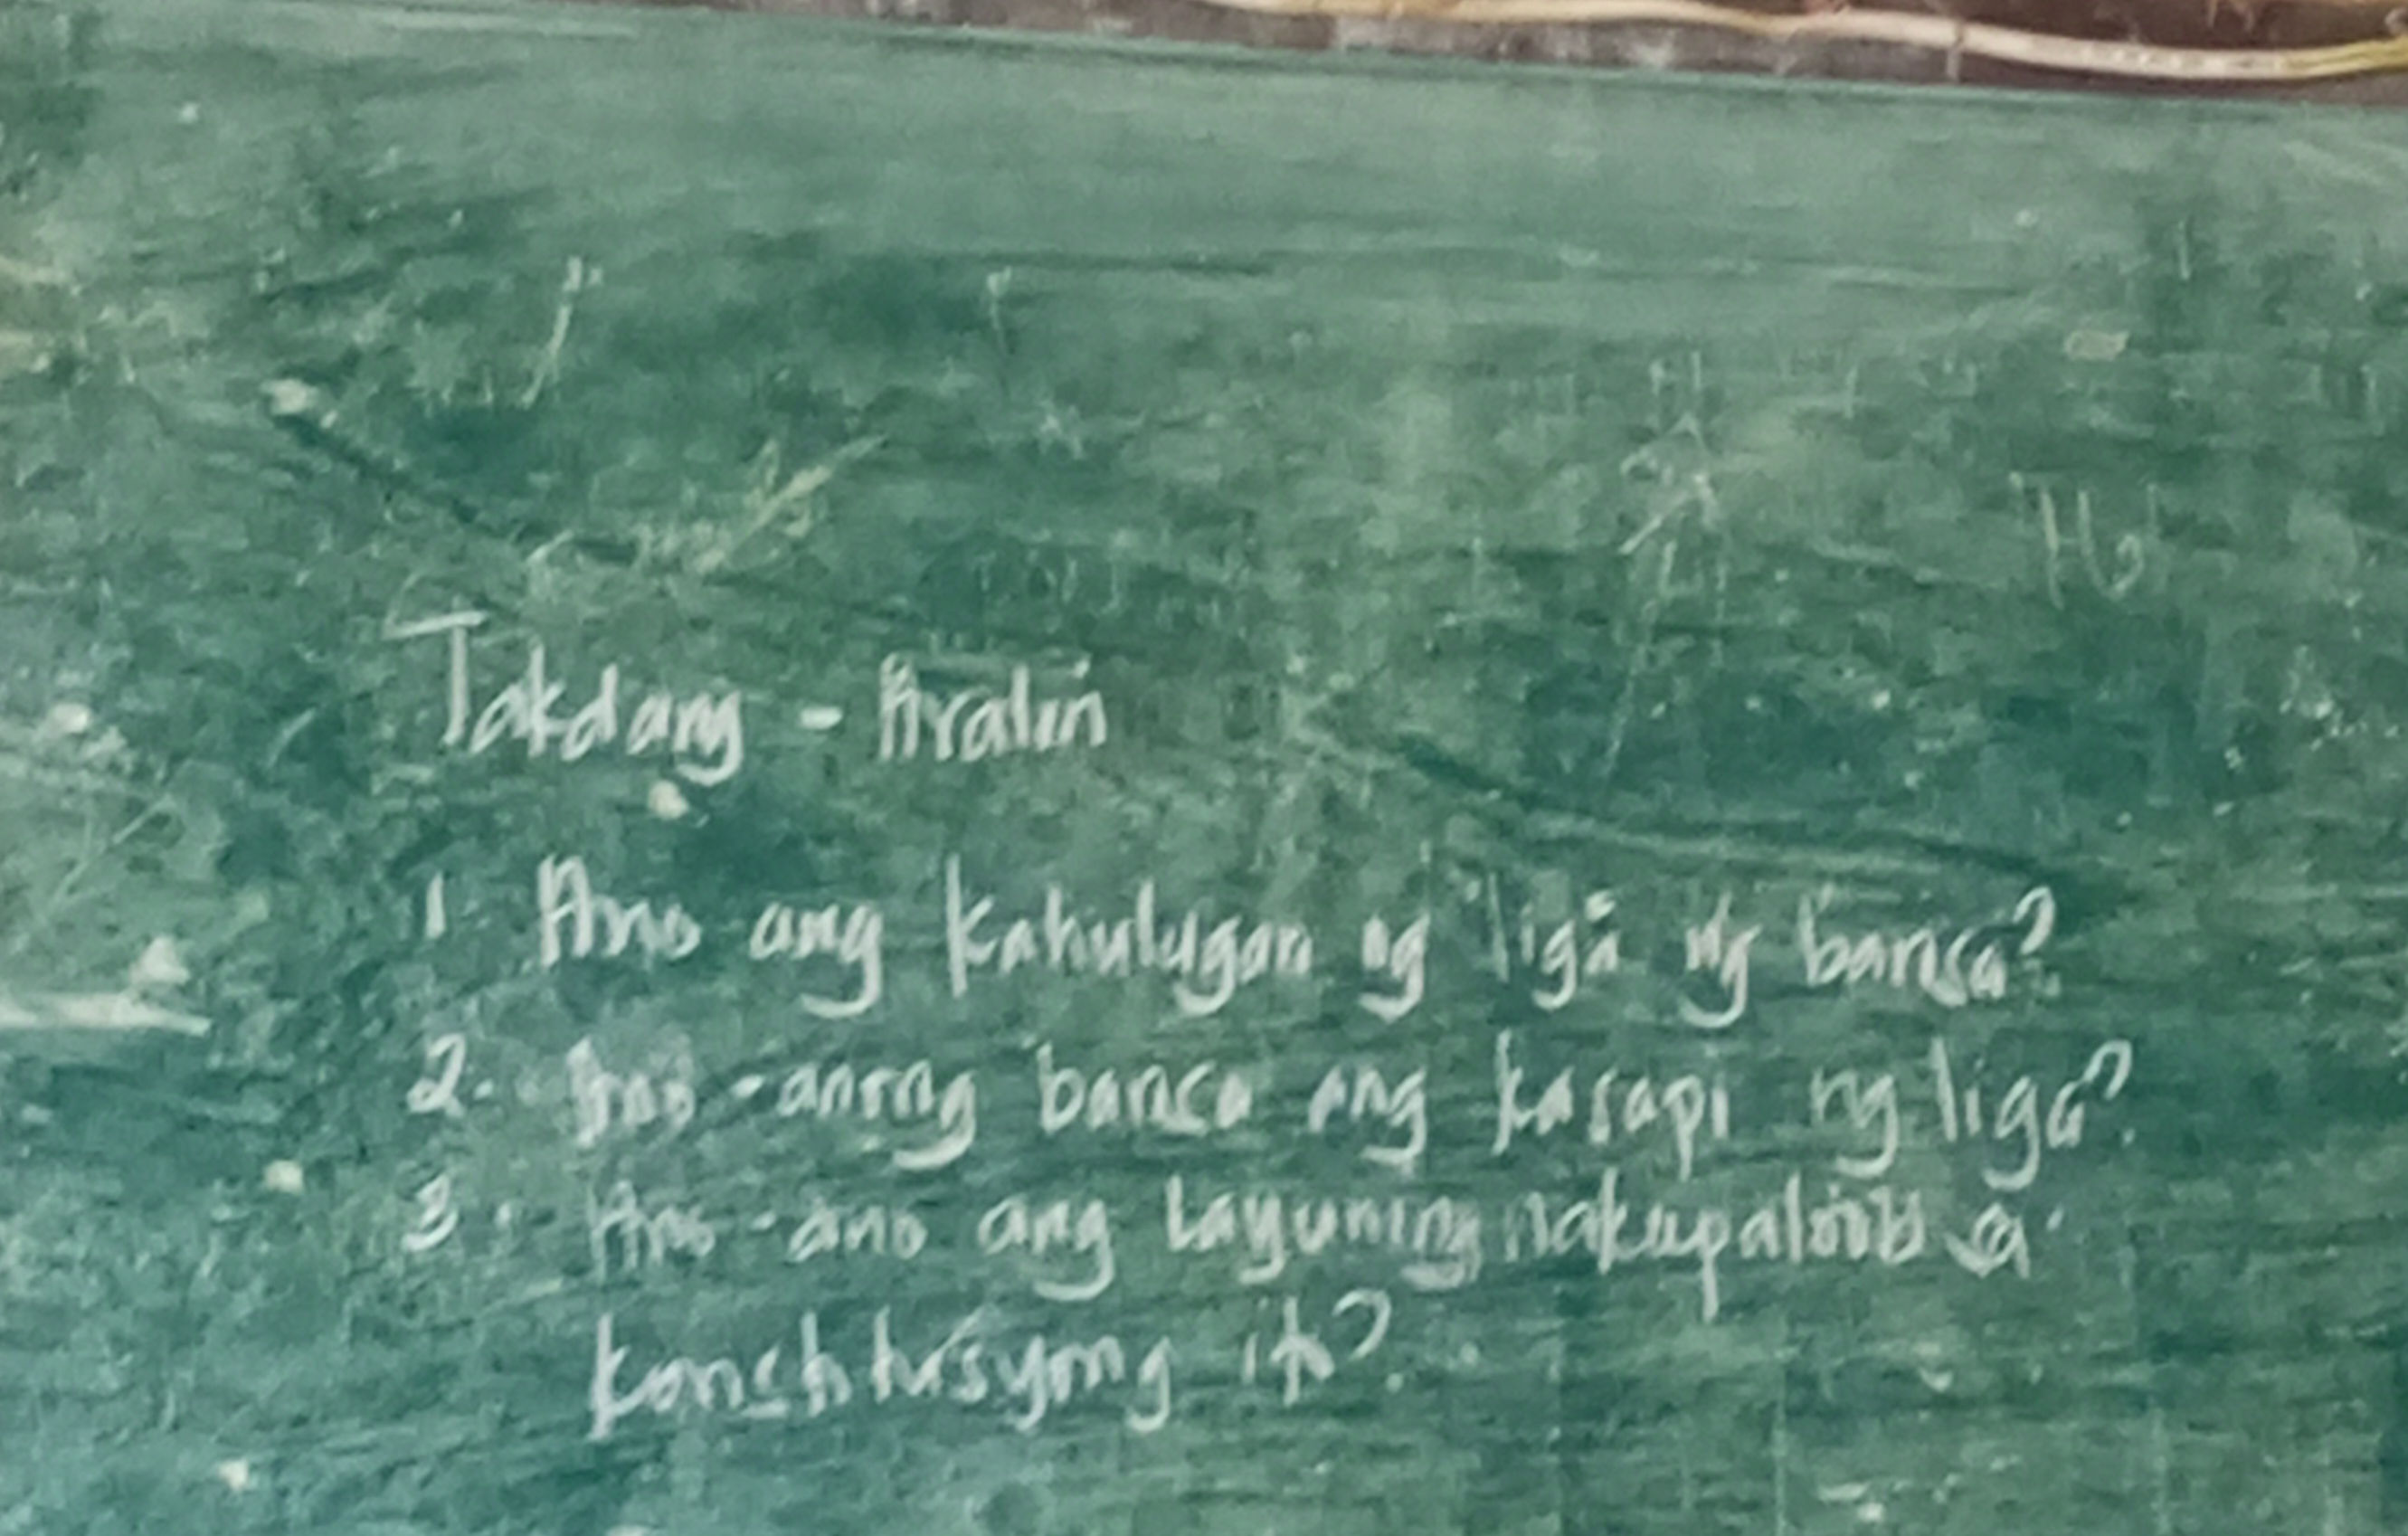 Takdang - Aralin
1 Ano ang kahulugan ng liga ng bansa?
2. Ano - anong bansa ang kasapi ng liga?
3. Ano - ano ang layuning nakapaloob sa
konstitusyong ito?